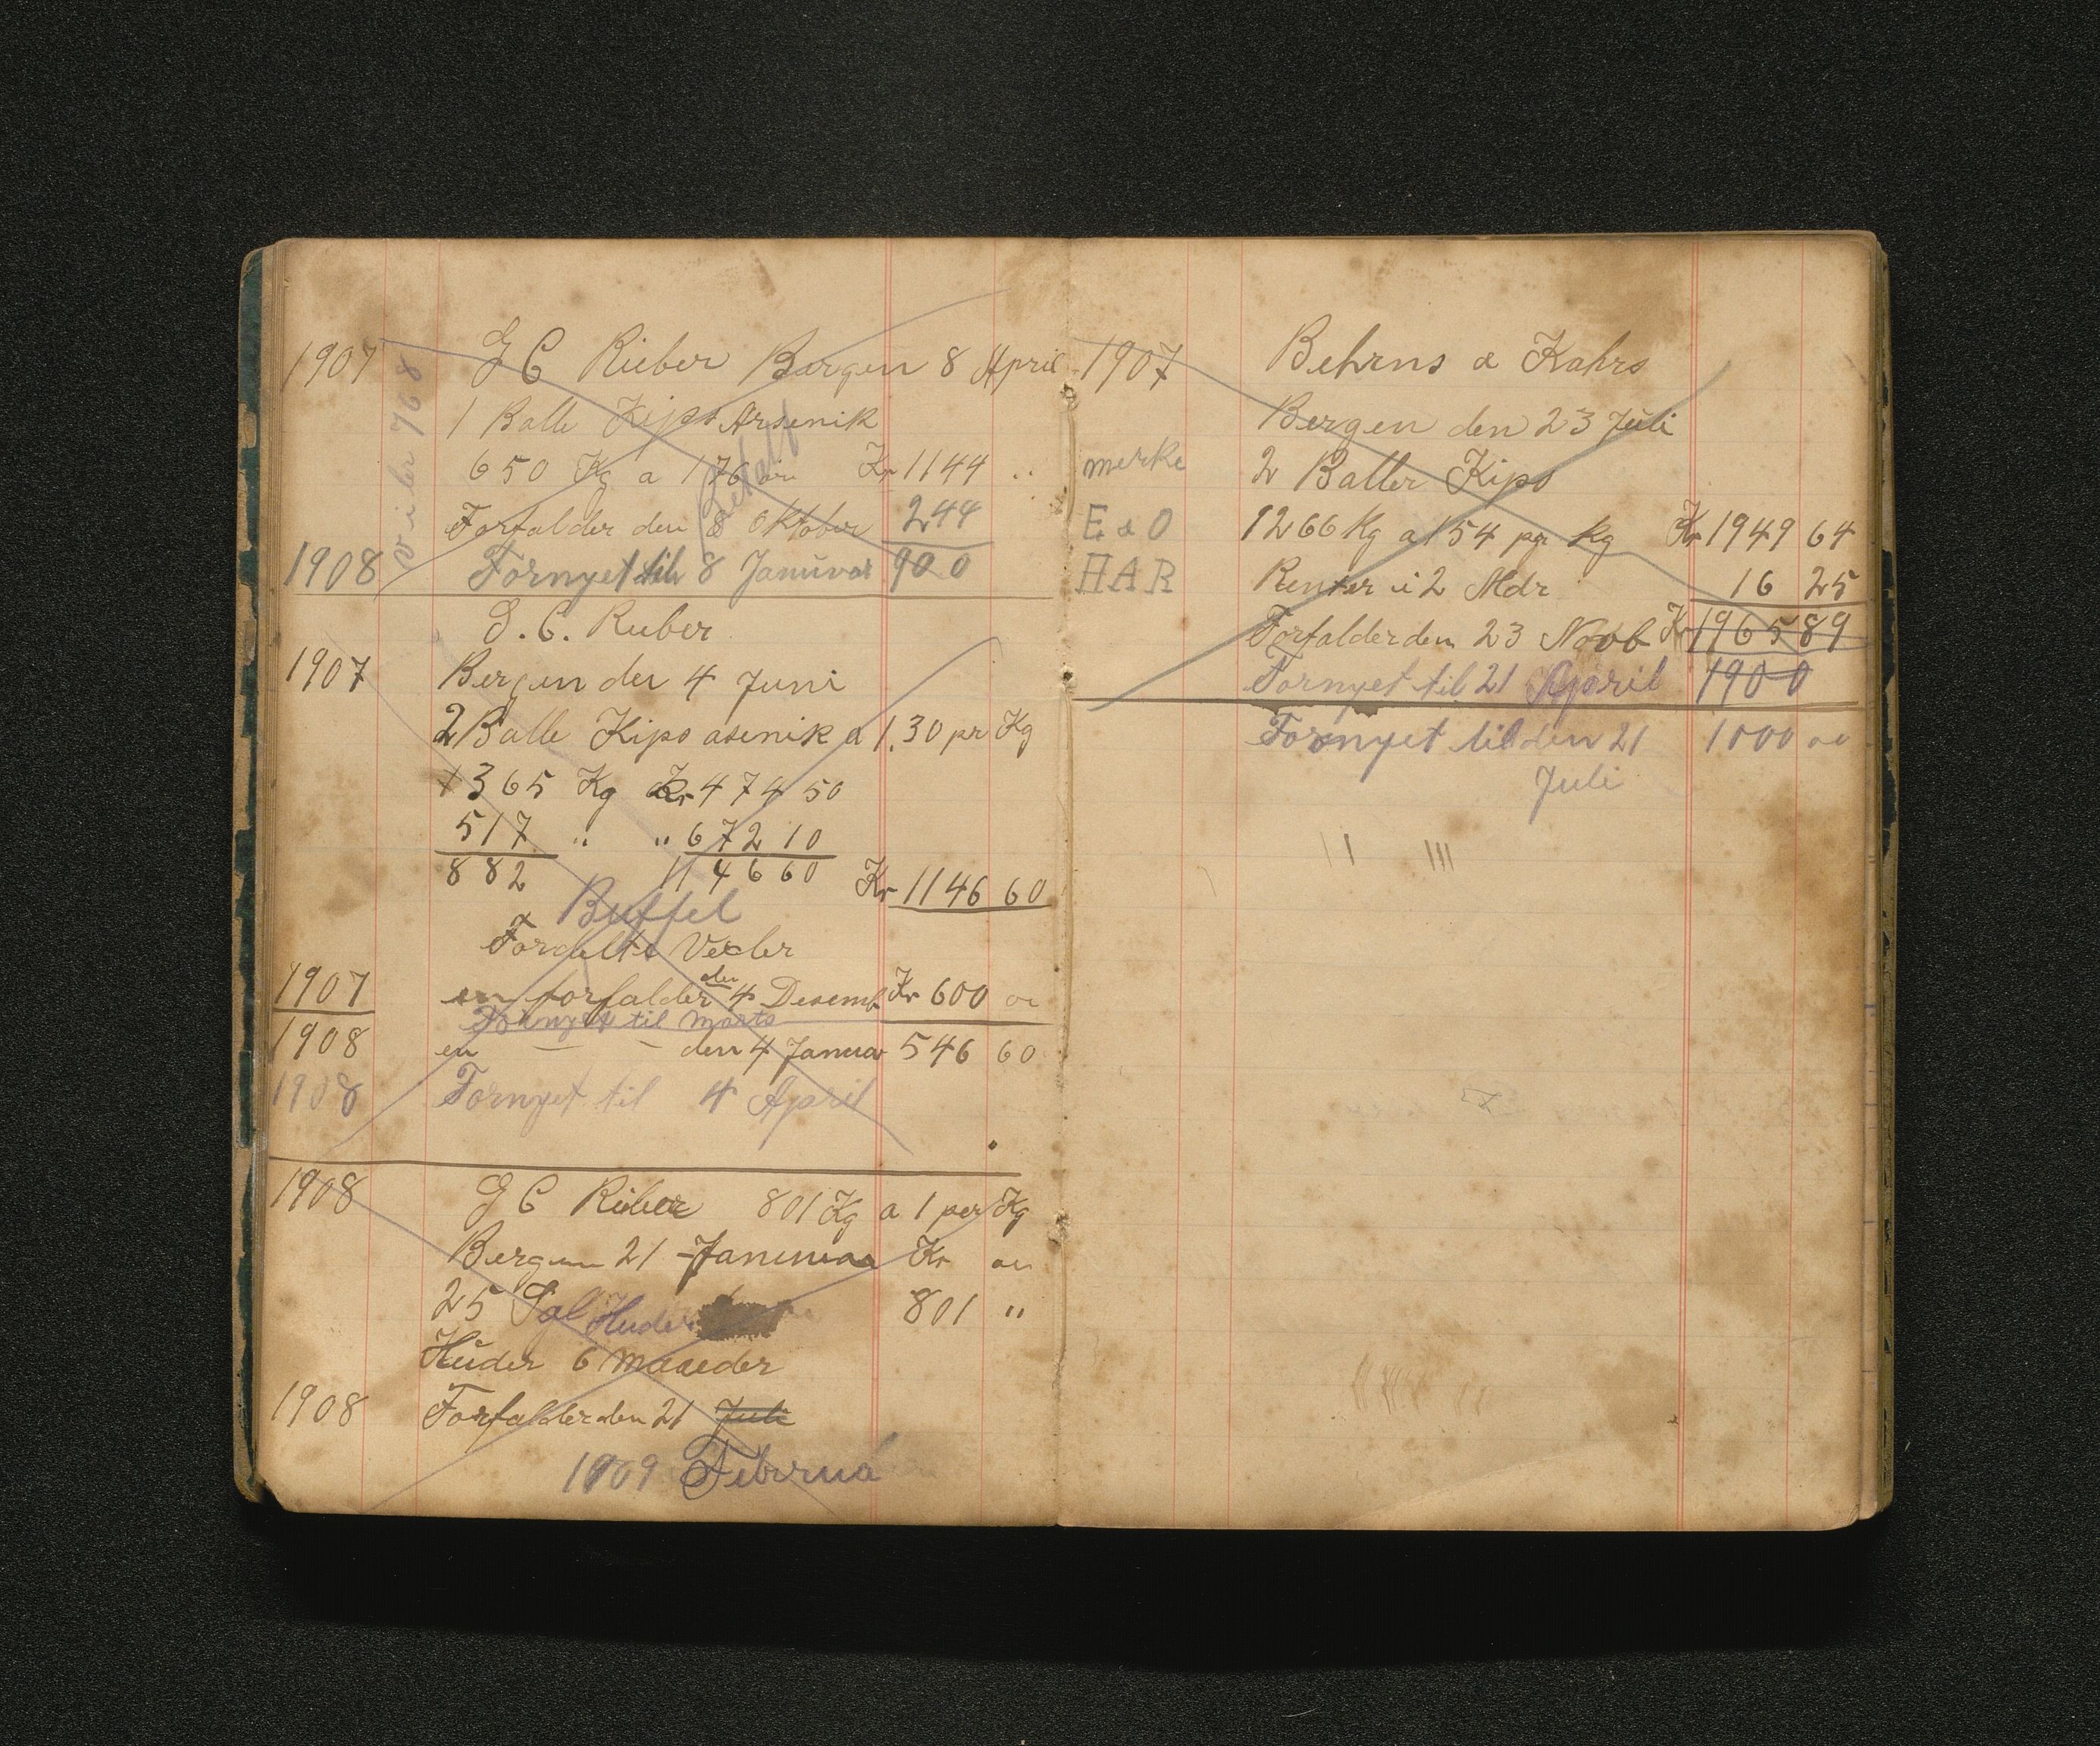 1907 G C Rieber Bergen 8 April
1 Balle Kips Arsenik
650 Kg a 176 øre Kr 1144 "
Forfalder den 8 Oktober 244
1908 Fornyet til 8 Januvar 900
Betalt
768
G. C. Rieber
1907 Bergen den 4 Juni
2 Balle Kips asenik a 1.30 pr Kg
+ 365 Kg Kr 474 50
517 " " 672 10
882 1146 60 Kr 1146 60
Buffel
2 Fordelte Vexler
1907 en forfalder den 4 Desemb Kr 600 oe
Fornyet til marts
1908 en — — den 4 Januar 546 60
1908 Fornyet til 4 April
1908 G C Rieber 801 Kg a 1 per Kg
Bergen 21 Januuar Kr oe
25 Sal Huder 801 "
Huder 6 maaeder
1908 Forfalder den 21 Juli
1909 Februa
1907 Behrns & Kahrs
Bergen den 23 Juli
merke 2 Baller Kips
E & O 1266 Kg a 154 pr Kg Kr 1949 64
HAR Renter i 2 Mdr 16 25
Forfalder den 23 Novb Kr 1965 89
Fornyet til 21 April 1900
Fornyet til den 21 1000 oe
Juli